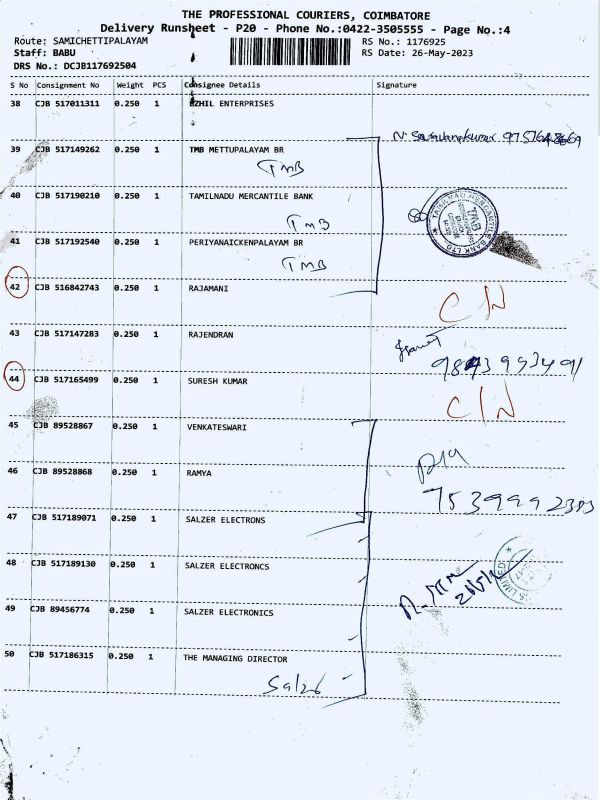 THE PROFESSIONAL COURIERS, COIMBATORE
Delivery Runsheet - P20 - Phone No.:0422-3505555 - Page No.:4
Route: SAMICHETTIPALAYAM
RS No.: 1176925
Staff: BABU
RS Date: 26-May-2023
DRS No.: DCJB117692504
S No Consignment No Weight PCS Consignee Details Signature
38 CJB 517011311 0.250 1 EZHIL ENTERPRISES
39 CJB 517149262 0.250 1 TMB METTUPALAYAM BR
TMB
40 CJB 517190210 0.250 1 TAMILNADU MERCANTILE BANK
TMB
41 CJB 517192540 0.250 1 PERIYANAICKENPALAYAM BR
TMB
42 CJB 516842743 0.250 1 RAJAMANI
C/N
43 CJB 517147283 0.250 1 RAJENDRAN
44 CJB 517165499 0.250 1 SURESH KUMAR
C/N
45 CJB 89528867 0.250 1 VENKATESWARI
46 CJB 89528868 0.250 1 RAMYA
47 CJB 517189071 0.250 1 SALZER ELECTRONS
48 CJB 517189130 0.250 1 SALZER ELECTRONCS
49 CJB 89456774 0.250 1 SALZER ELECTRONICS
50 CJB 517186315 0.250 1 THE MANAGING DIRECTOR